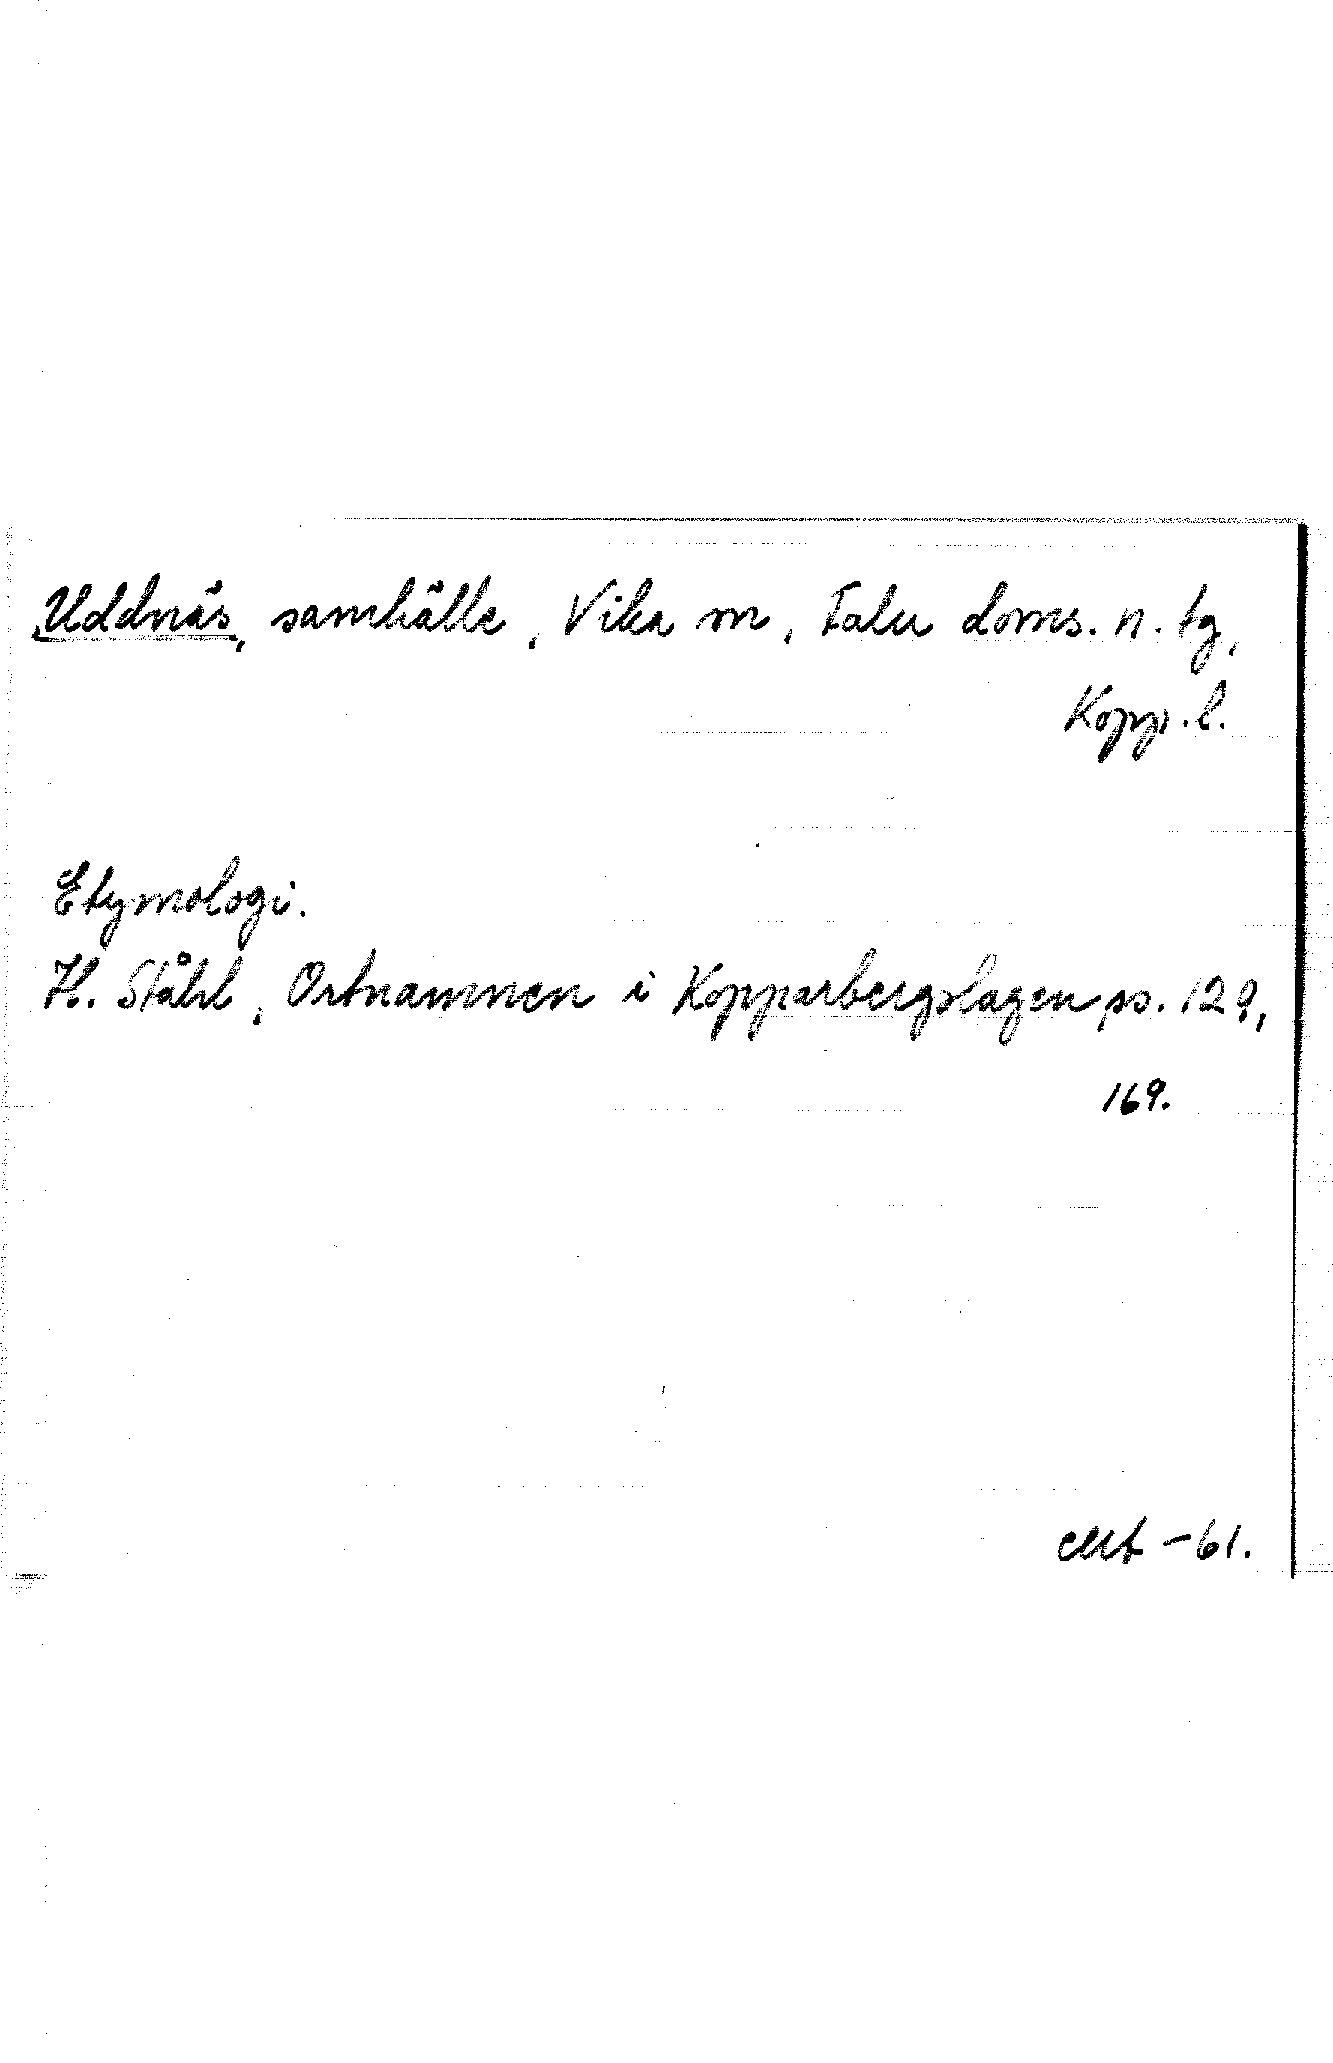 Uddnäs, samhälle, Vika sn, Falu doms. n. tg,
Kopp. l.
Etymologi.
H. Ståhl, Ortnamnen i Kopparbergslagen ss. 129,
169.
-61.